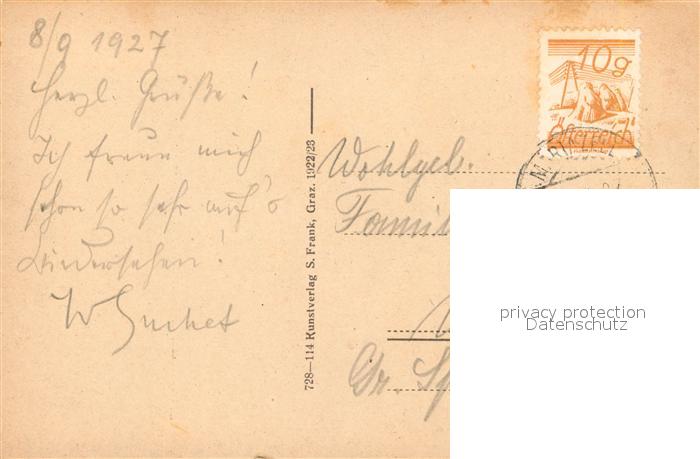 8/9 1927
Herzl. Grüße!
Ich freue mich
schon so sehr auf's
Wiedersehen!
W
10g
Österreich
MARIAZELL
Wohlgeb.
Famil
Gr. Sp
728—114 Kunstverlag S. Frank, Graz. 1922/23
privacy protection
Datenschutz